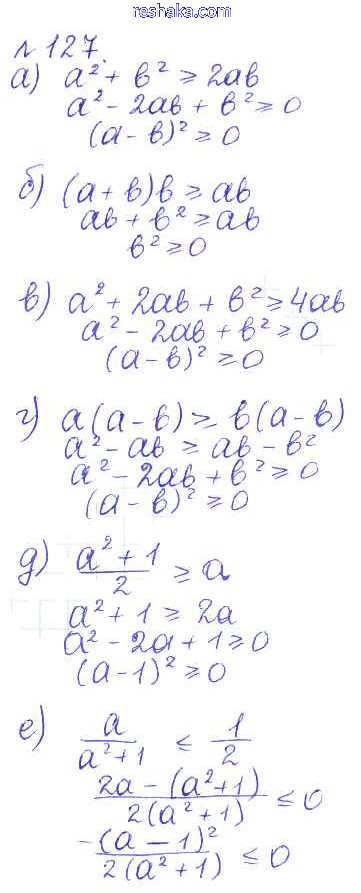 reshaka.com
№ 127.
а) a² + b² ≥ 2ab
a² - 2ab + b² ≥ 0
(a - b)² ≥ 0
б) (a + b)b ≥ ab
ab + b² ≥ ab
b² ≥ 0
в) a² + 2ab + b² ≥ 4ab
a² - 2ab + b² ≥ 0
(a - b)² ≥ 0
г) a(a - b) ≥ b(a - b)
a² - ab ≥ ab - b²
a² - 2ab + b² ≥ 0
(a - b)² ≥ 0
д) (a² + 1)/2 ≥ a
a² + 1 ≥ 2a
a² - 2a + 1 ≥ 0
(a - 1)² ≥ 0
е) a/(a² + 1) ≤ 1/2
(2a - (a² + 1))/(2(a² + 1)) ≤ 0
(-(a - 1)²)/(2(a² + 1)) ≤ 0